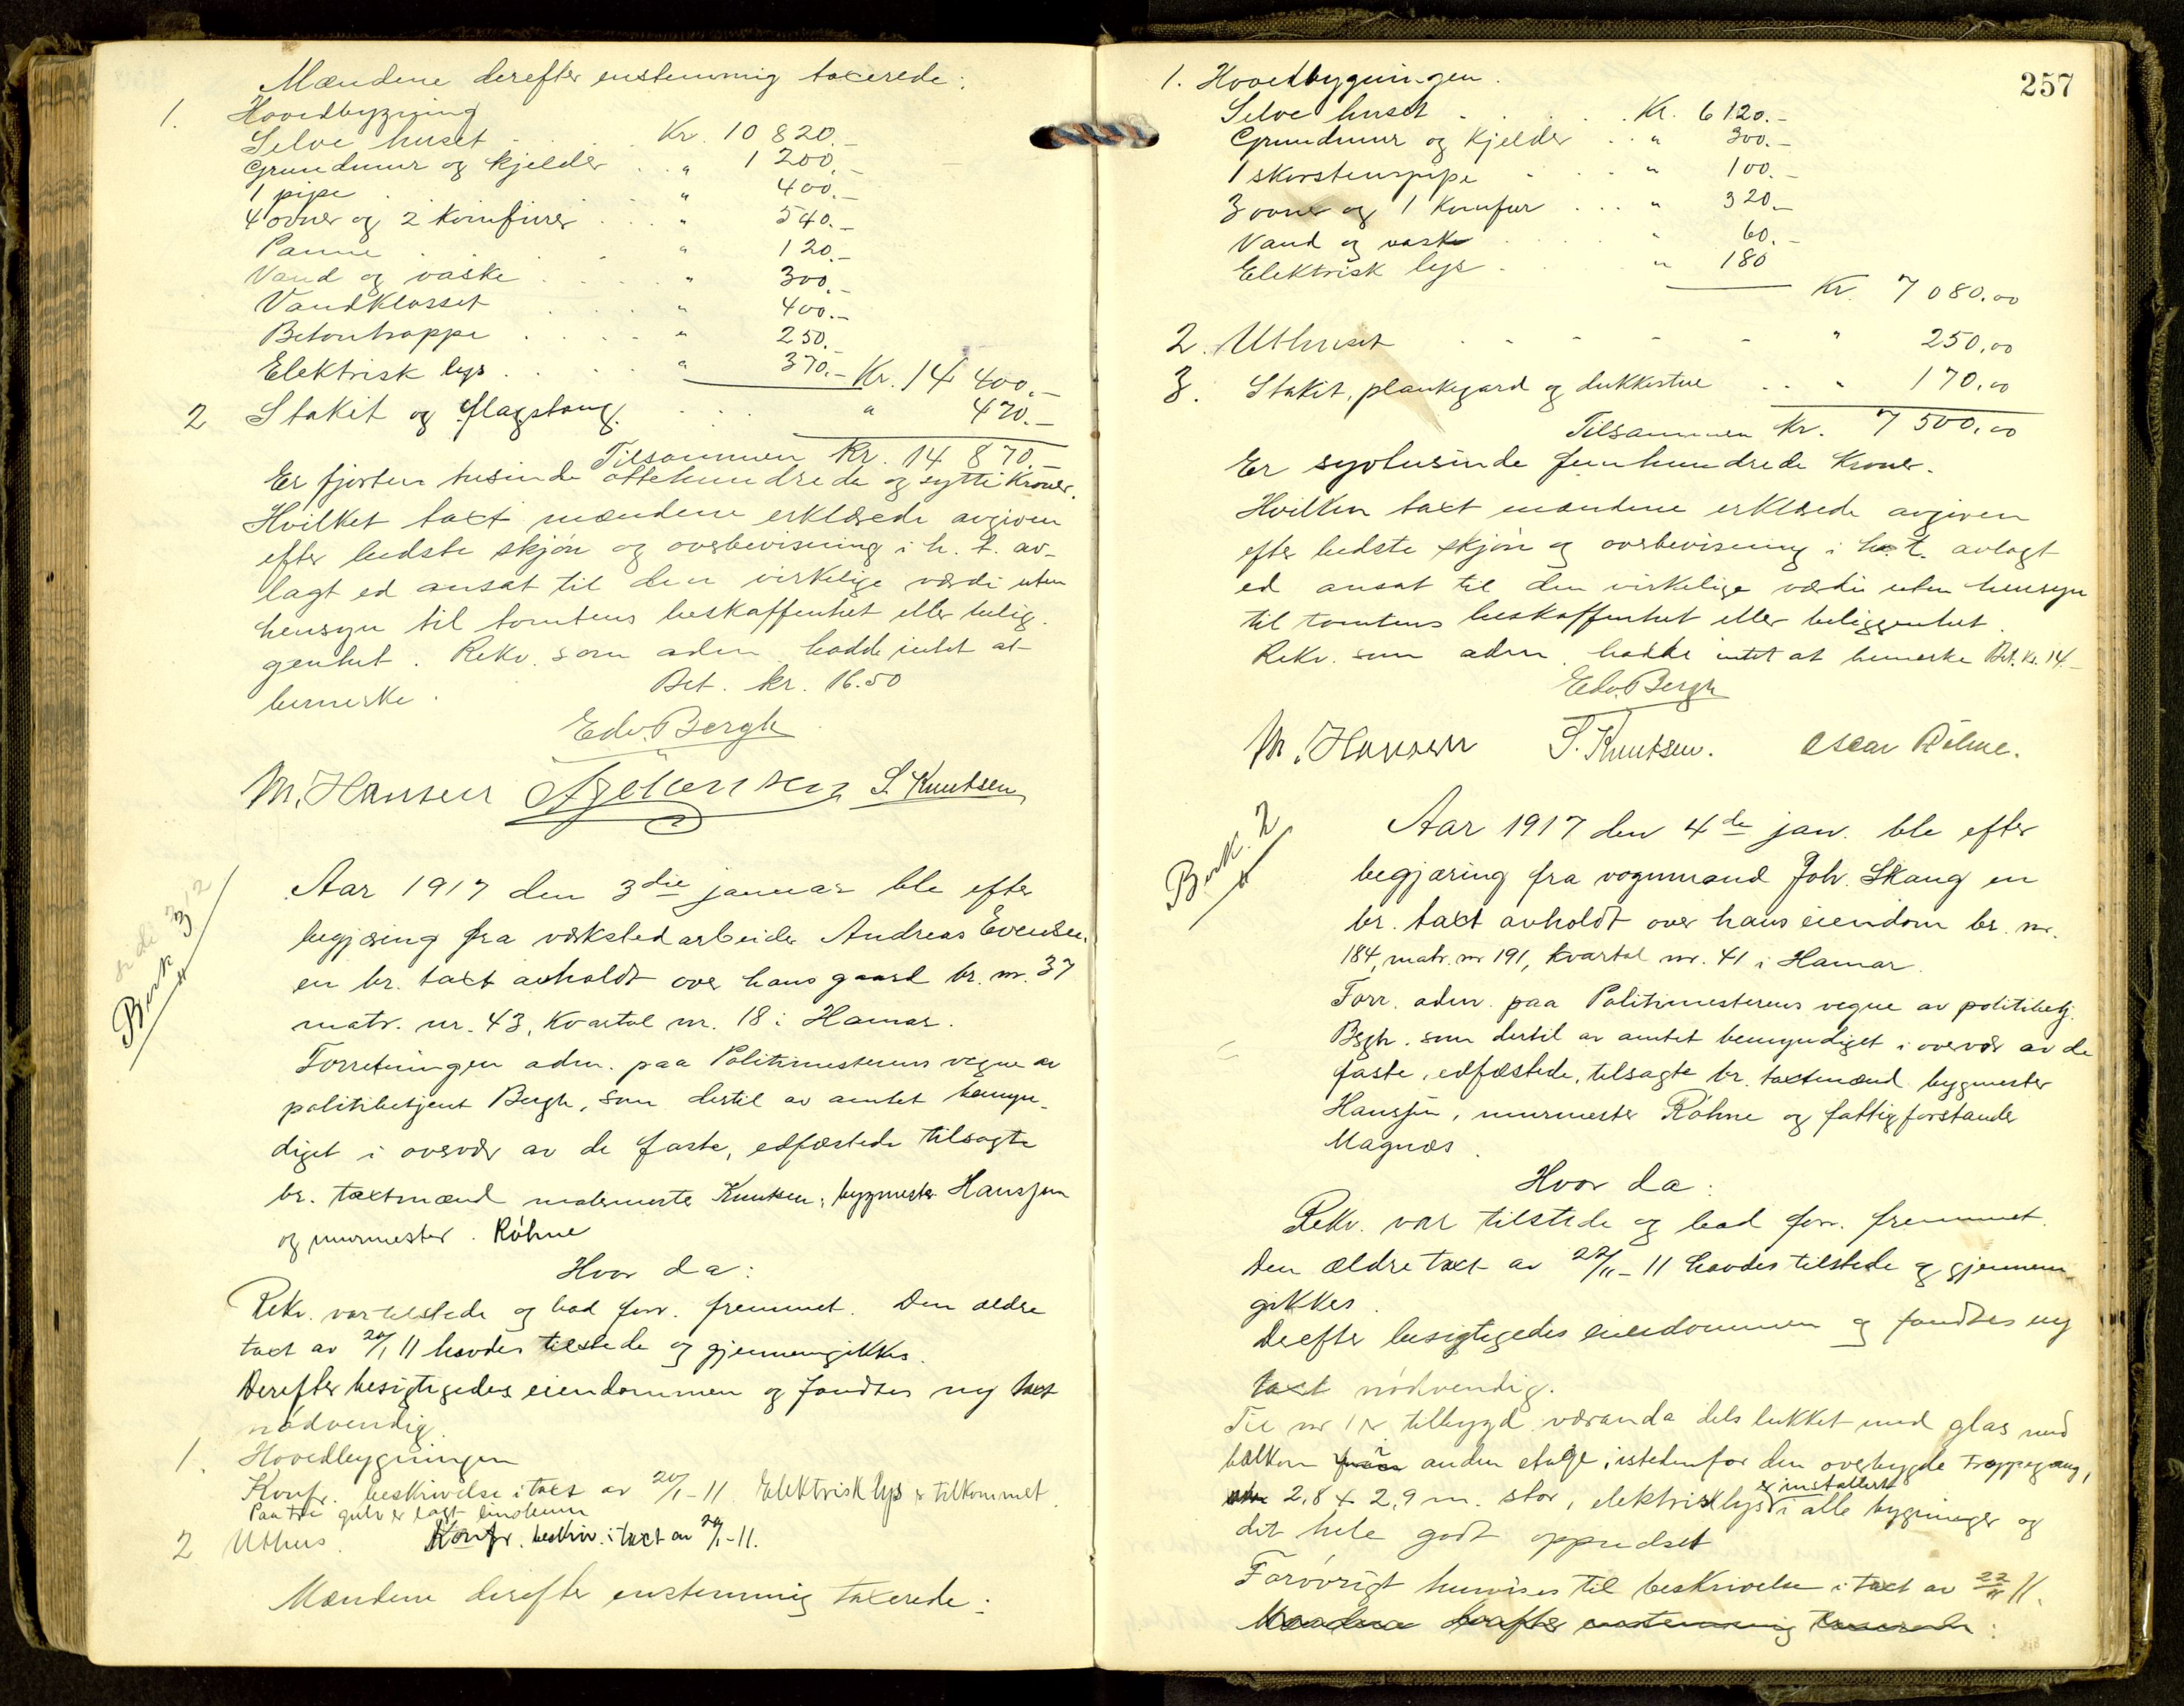 Mændene derefter enstemmig taxerede:
1. Hovedbygning
Selve huset . . . Kr. 10 820.-
Grundmur og kjelder . . " 1 200.-
1 pipe . . . " 400.-
4 ovner og 2 komfurer . . " 540.-
Panne . . . " 120.-
Vand og vaske . . . " 300.-
Vandklosset . . . " 400.-
Betontrappe . . . " 250.-
Elektrisk lys . . . " 370.- Kr. 14 400.-
2 Stakit og flagstang. . . . " 470.-
Tilsammen Kr. 14 870.-
Er fjorten tusinde ottehundrede og sytti Kroner.
Hvilket taxt mændene erklærede avgiven
efter bedste skjøn og overbevisning i h. t. av-
lagt ed ansat til den virkelige værdi uten
hensyn til tomtens beskaffenhet eller belig-
genhet. Rekv. som adm. hadde intet at
bemerke. Bet. kr. 16.50
Edv. Bergh
M. Hansen S. Knutsen
Aar 1917 den 3die januar ble efter
begjæring fra værkstedarbeider Andreas Evensen
en br. taxt avholdt over hans gaard br. nr. 37
matr. nr. 43, Kvartal nr. 18 i Hamar.
Forretningen adm. paa Politimesterens vegne av
politibetjent Bergh, som dertil av amtet bemyn-
diget i overvær av de faste, edfæstede tilsagte
br. taxtmænd malermester Knutsen, bygmester Hansen
og murmester. Røhne
Hvor da:
Rekv. var tilstede og bad forr. fremmet. Den ældre
taxt av 20/1 11 havdes tilstede og gjennemgikkes.
Derefter besigtigedes eiendommen og fandtes ny taxt
nødvendig.
1. Hovedbygningen
Konfr. beskrivelse i taxt av 20/1-11 Elektrisk lys er tilkommet.
Paa tre gulv er lagt linoleum
2 Uthus. Konfr. beskriv. i taxt av 20/1-11.
Mændene derefter enstemmig taxerede:
257
1. Hovedbygningen.
Selve huset . . . Kr. 6 120.-
Grundmur og Kjelder . . " 300.-
1 skorstenspipe . . . " 100.-
3 ovner og 1 Komfur . . . " 320.-
Vand og vask . . . " 60.-
Elektrisk lys . . . " 180
Kr. 7 080.00
2. Uthuset . . . " 250.00
3. Stakit, plankegard og dukkestue . . " 170.00
Tilsammen Kr. 7 500.00
Er syvtusinde femhundrede Kroner.
Hvilken taxt mændene erklærede avgiven
efter bedste skjøn og overbevisning i h. t. avlagt
ed ansat til den virkelige værdi uten hensyn
til tomtens beskaffenhet eller beliggenhet.
Rekv. som adm. hadde intet at bemerke Bet. Kr. 14.-
Edv. Bergh
M. Hansen S. Knutsen. Oscar Röhne.
Aar 1917 den 4de jan. ble efter
begjæring fra vognmand Joh. Skaug en
br. taxt avholdt over hans eiendom br. nr.
184, matr. nr 191, kvartal nr. 41 i Hamar.
Forr. adm. paa Politimesterens vegne av politibetj.
Bergh. som dertil av amtet bemyndiget i overvær av de
faste, edfæstede, tilsagte br. taxtmænd bygmester
Hansen, murmester Røhne og fattigforstander
Magnæs.
Hvor da:
Rekv. var tilstede og bad forr. fremmet.
Den ældre taxt av 22/11-11 havdes tilstede og gjennem-
gikkes.
Derefter besigtigedes eiendommen og fandtes ny
taxt nødvendig.
Til nr 1 er tilbygd veranda dels lukket med glas med
balkon i anden etage, istedenfor den overbygde trappegang,
2,8 x 2,9 m. stor, elektrisk lys er installert i alle bygninger og
det hele godt oppudset
Forøvrigt henvises til beskrivelse i taxt av 22/11 11.
Mændene derefter enstemmig taxerede: